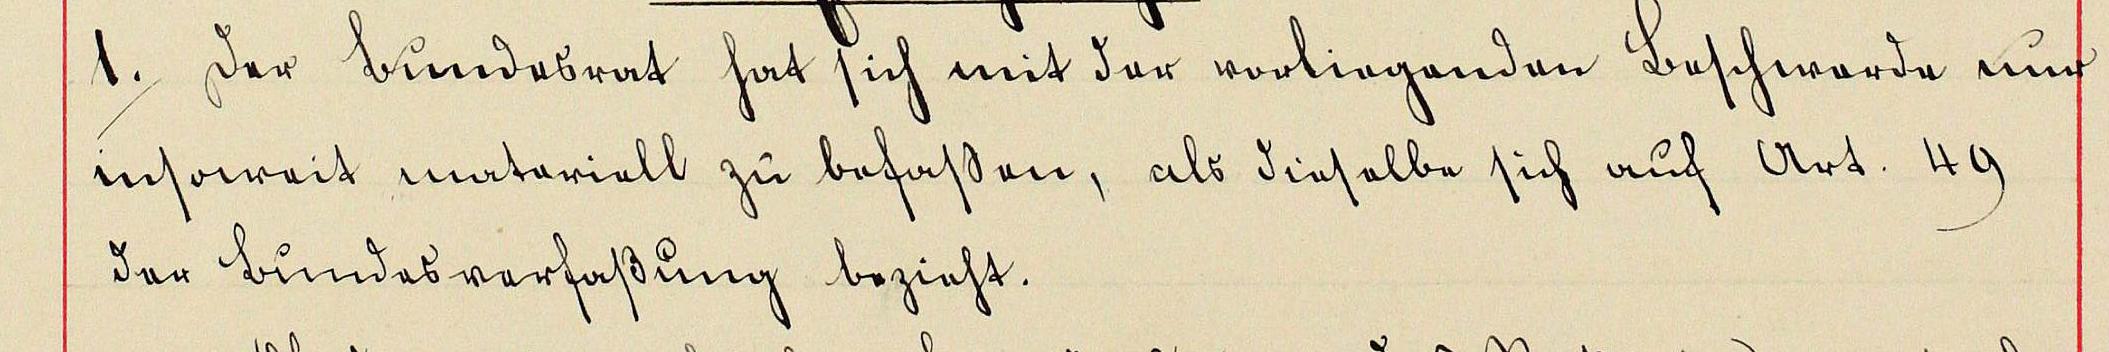 1. Der Bundesrat hat sich mit der vorliegenden Beschwerde nur
insoweit materiell zu befaßen, als dieselbe sich auf Art. 49
der Bundesverfaßung bezieht.